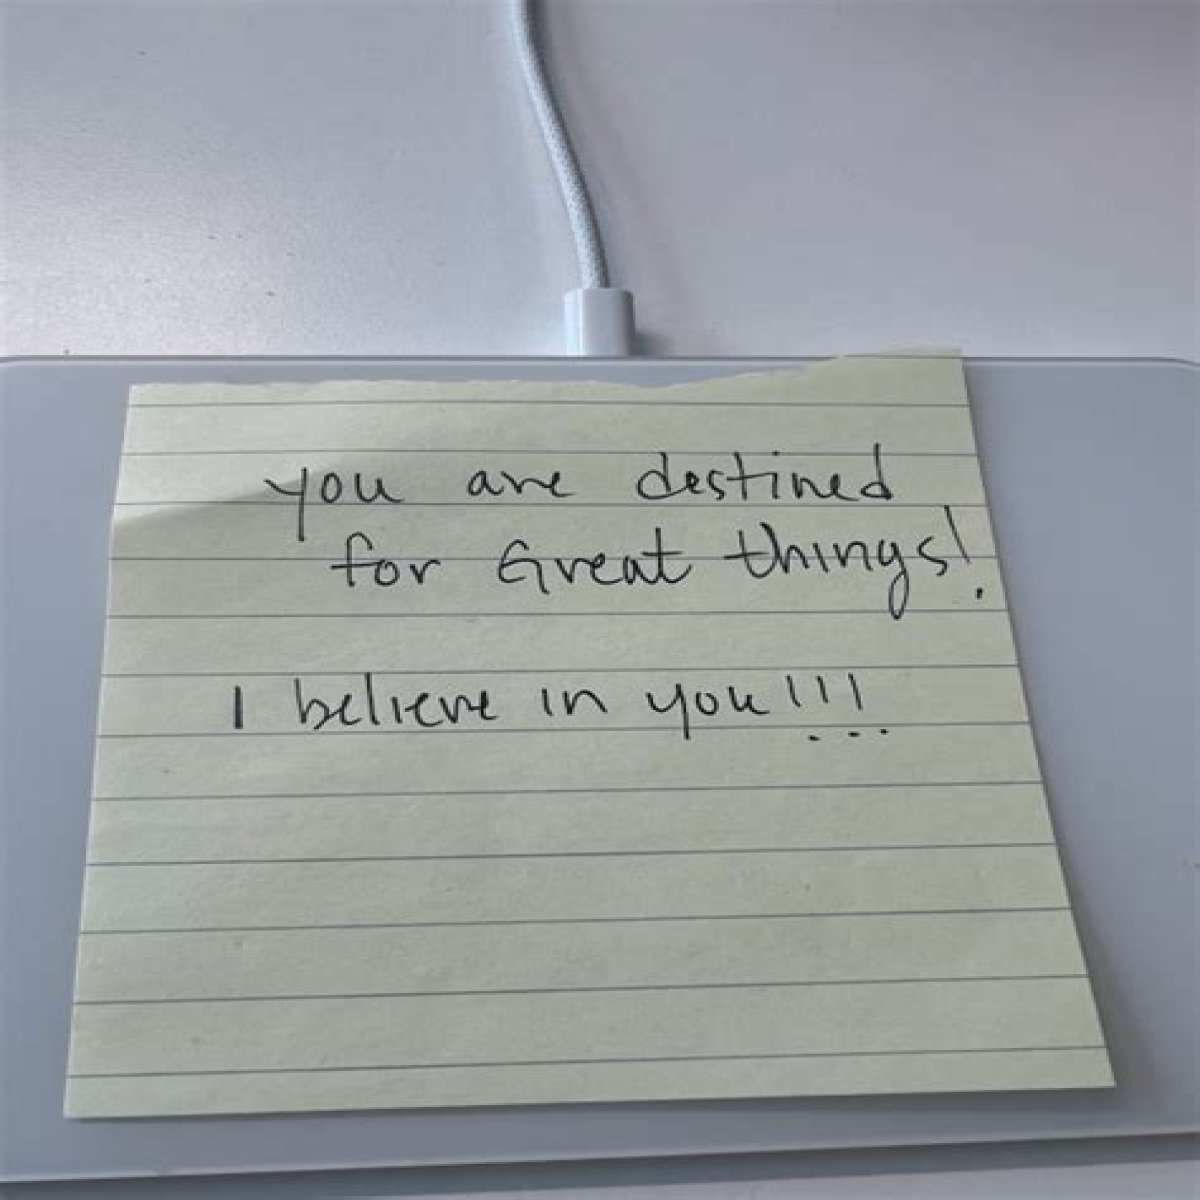 you are destined
for Great things!
I believe in you!!!